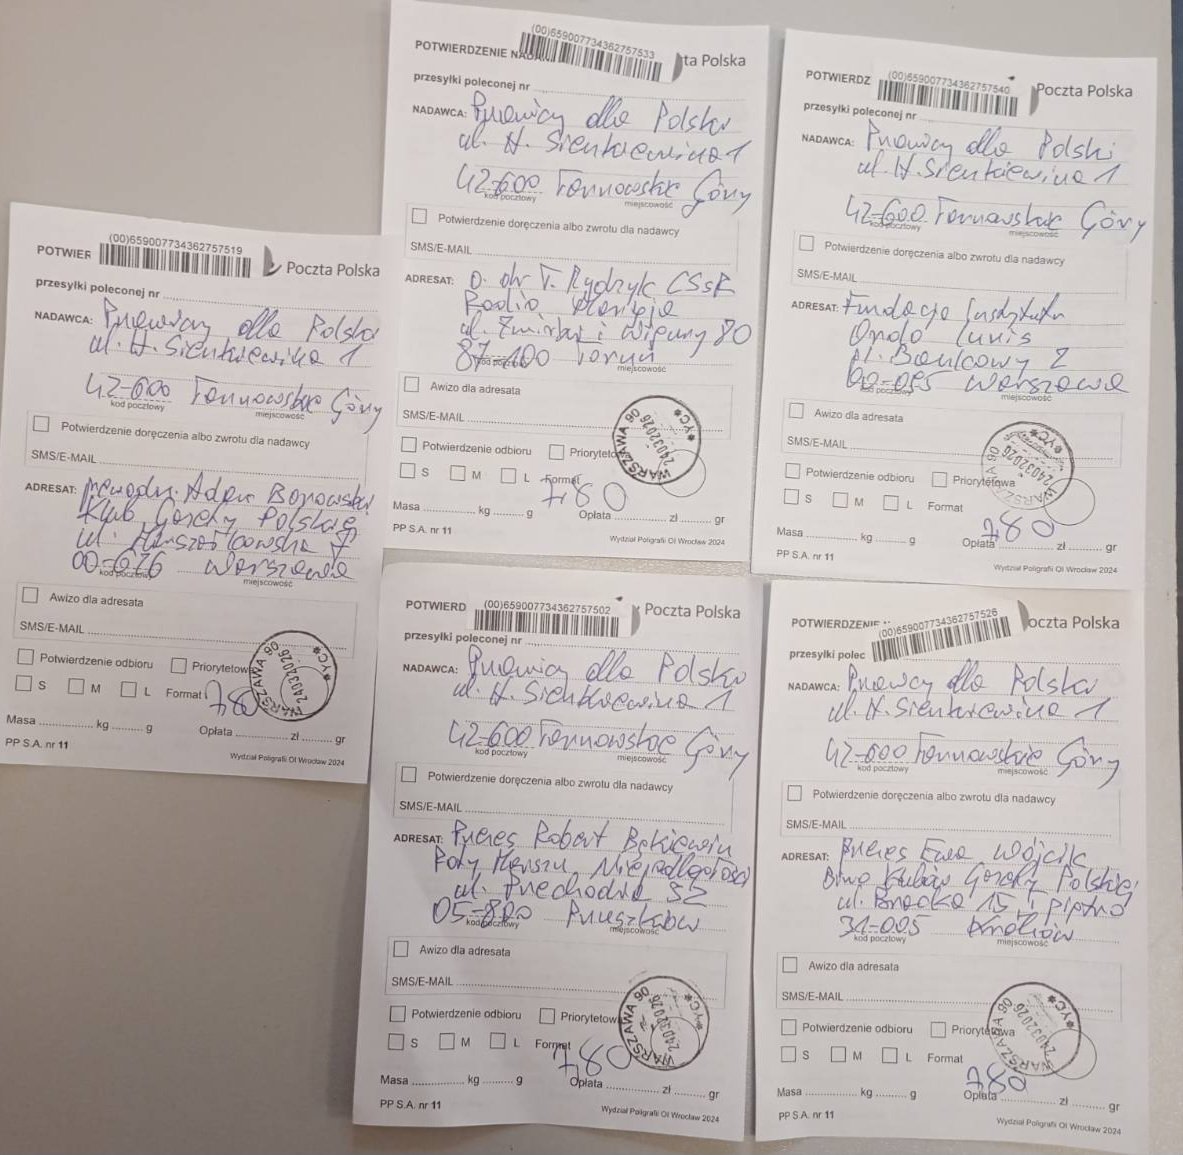 (00)659007734362757519
POTWIER
Poczta Polska
przesyłki poleconej nr
NADAWCA: Prawnicy dla Polski
ul. H. Sienkiewicza 1
42-600 Tarnowskie Góry
kod pocztowy miejscowość
Potwierdzenie doręczenia albo zwrotu dla nadawcy
SMS/E-MAIL
ADRESAT: Przewodn. Adam Borowski
Klub Gazety Polskiej
ul. Marszałkowska 7
00-626 Warszawa
kod pocztowy miejscowość
Awizo dla adresata
SMS/E-MAIL
Potwierdzenie odbioru Priorytetow
S M L Format 7,80
Masa kg g Opłata zł gr
PP S.A. nr 11 Wydział Poligrafii OI Wrocław 2024
WARSZAWA 90
24032026
*YC*
(00)659007734362757533
POTWIERDZENIE NADA
ta Polska
przesyłki poleconej nr
NADAWCA: Prawnicy dla Polski
ul. H. Sienkiewicza 1
42-600 Tarnowskie Góry
kod pocztowy miejscowość
Potwierdzenie doręczenia albo zwrotu dla nadawcy
SMS/E-MAIL
ADRESAT: O. dr T. Rydzyk CSsR
Radio Maryja
ul. Żwirki i Wigury 80
87-100 Toruń
kod pocztowy miejscowość
Awizo dla adresata
SMS/E-MAIL
Potwierdzenie odbioru Priorytetow
S M L Format 7,80
Masa kg g Opłata zł gr
PP S.A. nr 11 Wydział Poligrafii OI Wrocław 2024
WARSZAWA 90
24032026
*YC*
(00)659007734362757540
POTWIERDZ
Poczta Polska
przesyłki poleconej nr
NADAWCA: Prawnicy dla Polski
ul. H. Sienkiewicza 1
42-600 Tarnowskie Góry
kod pocztowy miejscowość
Potwierdzenie doręczenia albo zwrotu dla nadawcy
SMS/E-MAIL
ADRESAT: Fundacja Instytutu
Ordo Iuris
pl. Bankowy 2
00-095 Warszawa
kod pocztowy miejscowość
Awizo dla adresata
SMS/E-MAIL
Potwierdzenie odbioru Priorytetowa
S M L Format
7,80
Masa kg g Opłata zł gr
PP S.A. nr 11 Wydział Poligrafii OI Wrocław 2024
WARSZAWA 90
24032026
*YC*
(00)659007734362757502
POTWIERD
Poczta Polska
przesyłki poleconej nr
NADAWCA: Prawnicy dla Polski
ul. H. Sienkiewicza 1
42-600 Tarnowskie Góry
kod pocztowy miejscowość
Potwierdzenie doręczenia albo zwrotu dla nadawcy
SMS/E-MAIL
ADRESAT: Prezes Robert Bąkiewicz
Roty Marszu Niepodległości
ul. Przechodnia 52
05-800 Pruszków
kod pocztowy miejscowość
Awizo dla adresata
SMS/E-MAIL
Potwierdzenie odbioru Priorytetow
S M L Format 7,80
Masa kg g Opłata zł gr
PP S.A. nr 11 Wydział Poligrafii OI Wrocław 2024
WARSZAWA 90
24032026
*YC*
(00)659007734362757526
POTWIERDZENIE
oczta Polska
przesyłki polec
NADAWCA: Prawnicy dla Polski
ul. H. Sienkiewicza 1
42-600 Tarnowskie Góry
kod pocztowy miejscowość
Potwierdzenie doręczenia albo zwrotu dla nadawcy
SMS/E-MAIL
ADRESAT: Prezes Ewa Wójcik
Biuro Klubów Gazety Polskiej
ul. Bracka 15, I piętro
31-005 Kraków
kod pocztowy miejscowość
Awizo dla adresata
SMS/E-MAIL
Potwierdzenie odbioru Priorytetowa
S M L Format
7,80
Masa kg g Opłata zł gr
PP S.A. nr 11 Wydział Poligrafii OI Wrocław 2024
WARSZAWA 90
24032026
*YC*